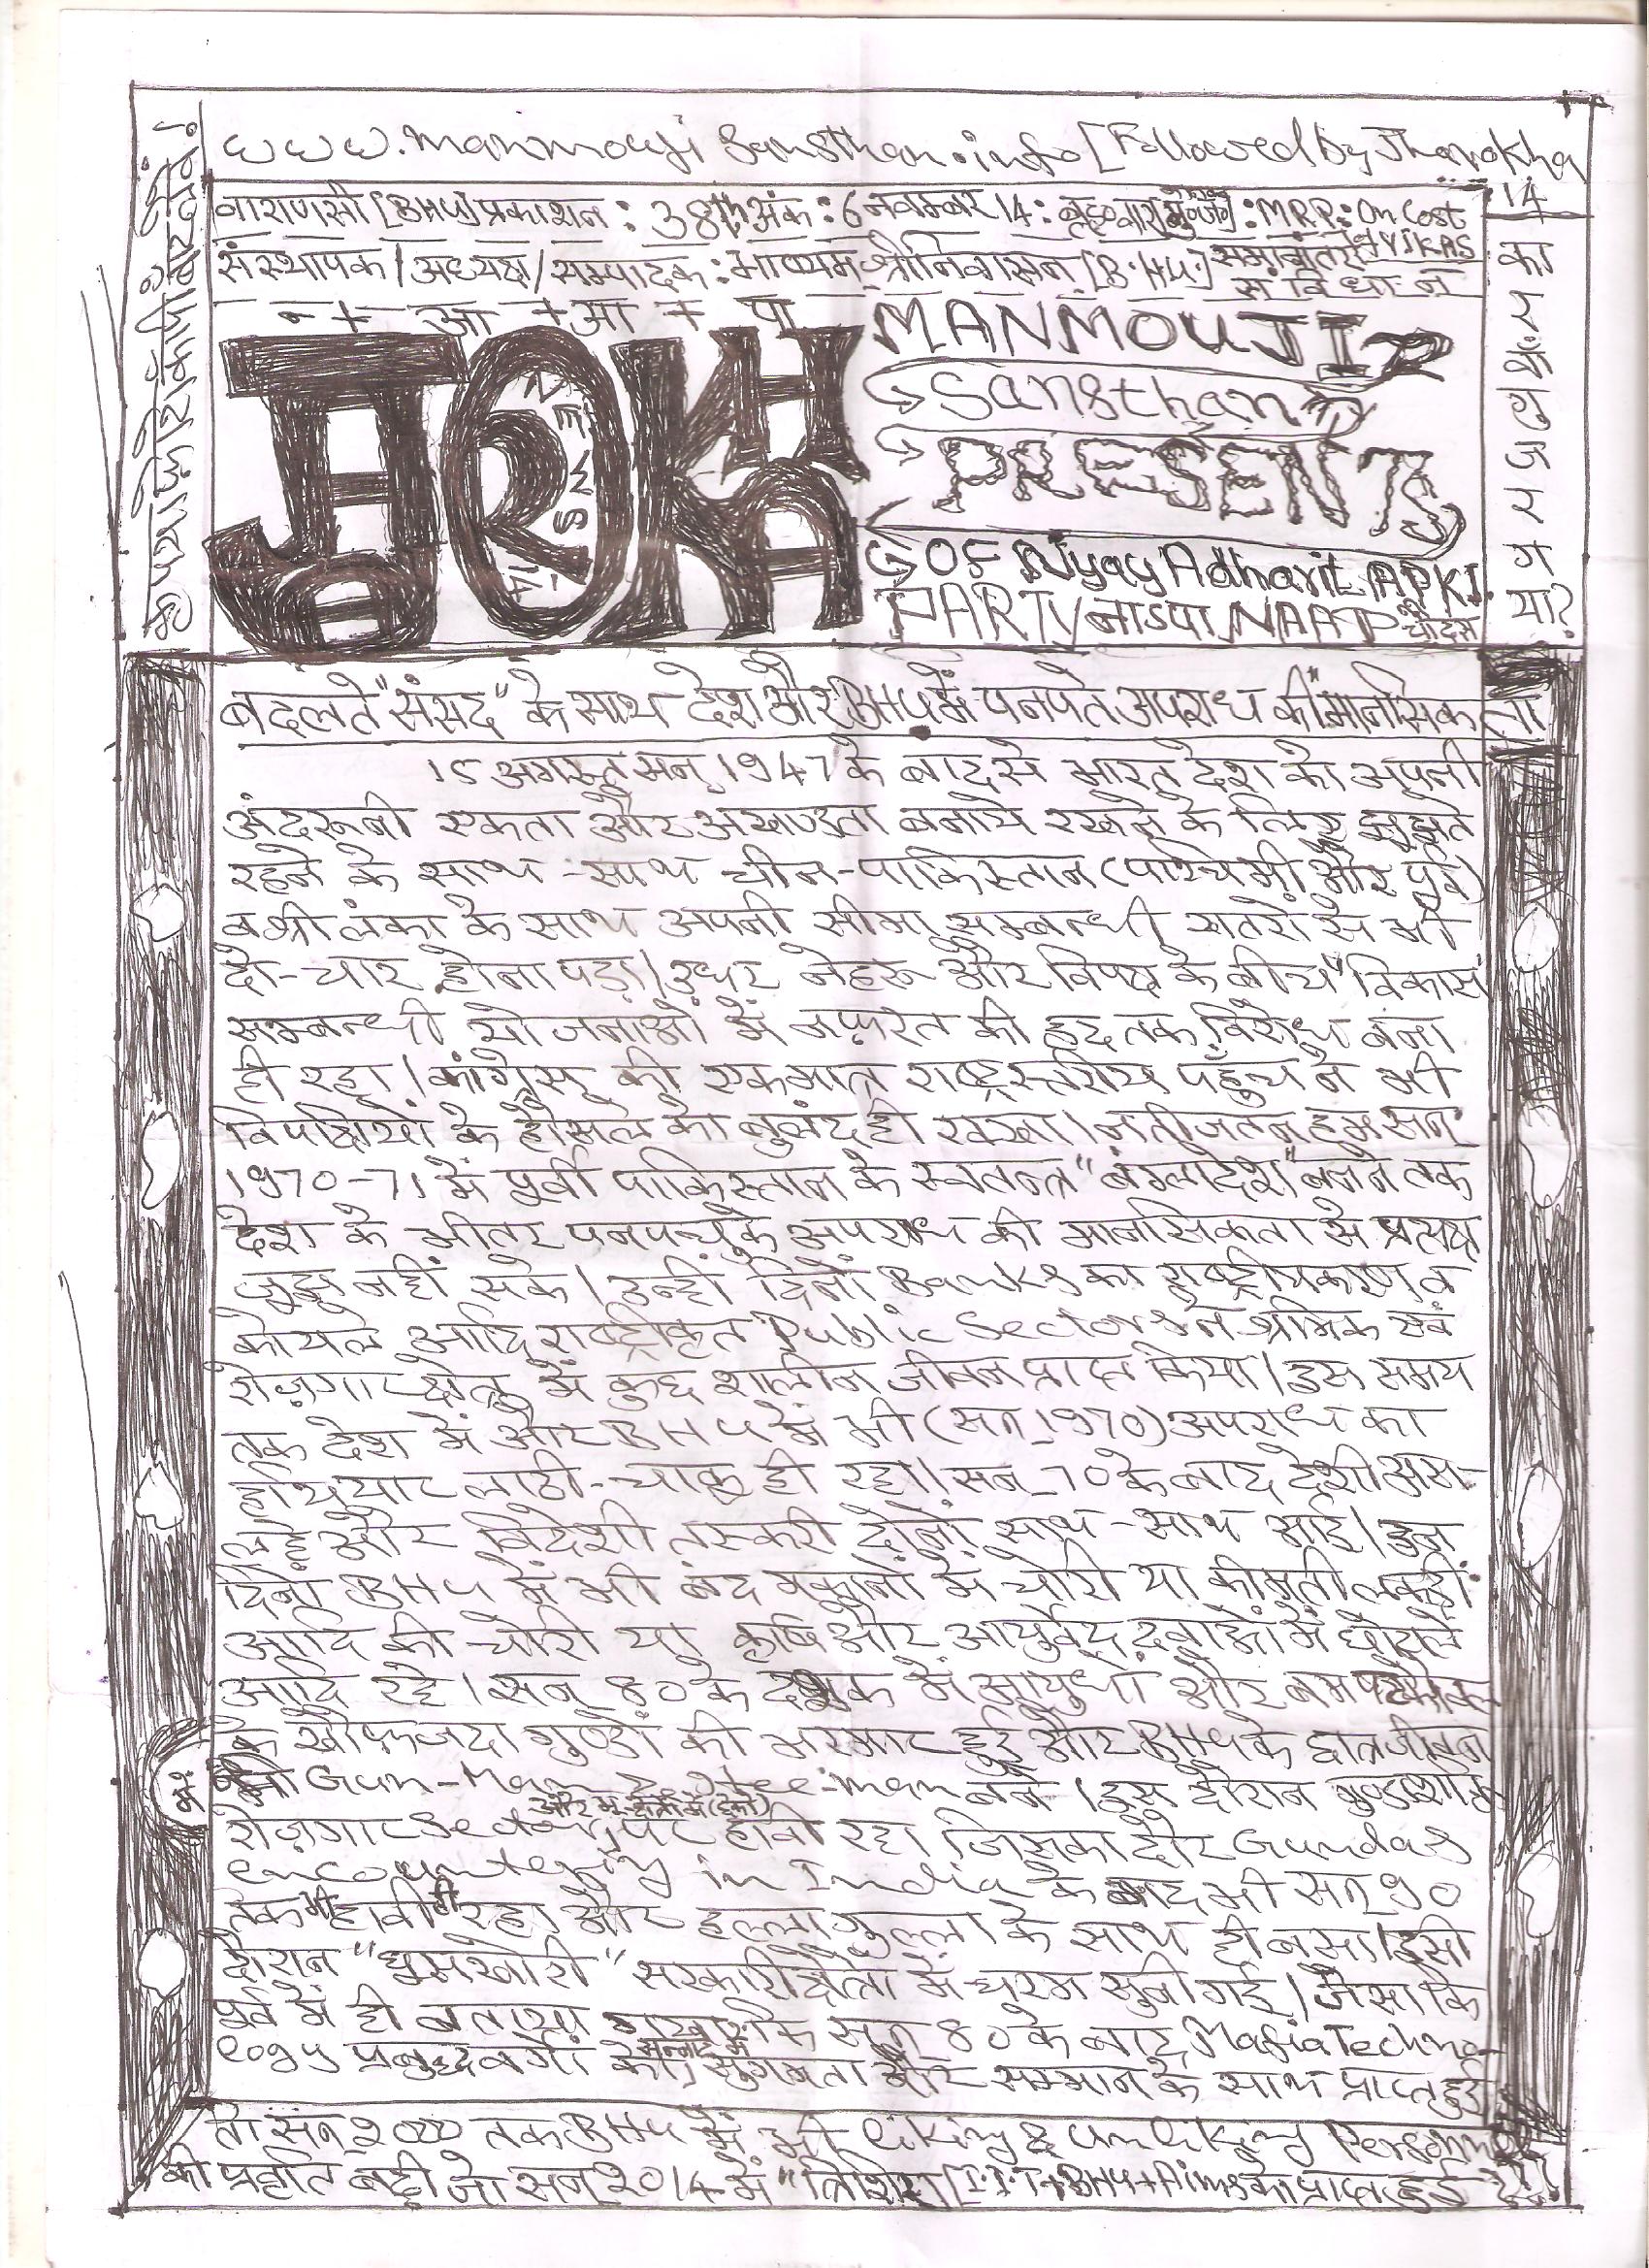 www.manmouji Sansthan.info [Followed by Jharokha
वाराणसी [BHU] प्रकाशन : 38th अंक : 6 नवम्बर 14 : : MRP : On Cost
संस्थापक / अध्यक्ष / सम्पादक : माध्यम श्रीनिवासन [B.H.U.] समानांतर
संविधान
कृपया फोटोकॉपी बांटे!
14 का य जय गया?
MANMOUJI
Sangsthan
PRESENTS
OF Nyay Adharit APKI
PARTY/नाआपा/NAAP
NEWS
बदलते "संसद" के साथ देश और BHU में पनपते अपराध की "मानसिकता
15 अगस्त सन् 1947 के बाद से भारत देश को अपनी
अंदरूनी एकता और अखण्डता बनाये रखने के लिए जूझते
रहने के साथ-साथ चीन-पाकिस्तान (पश्चिमी और पूर्व)
व श्रीलंका के साथ अपनी सीमा सम्बन्धी खतरों से भी
दो-चार होना पड़ा। उधर नेहरू और विपक्ष के बीच "विकास
सम्बन्धी योजनाओं में नफ़रत की हद तक विरोध बना
ही रहा। कांग्रेस की एकमात्र राष्ट्रस्तरीय पहुँच ने भी
विपक्षियों के हौसले को बुलंद ही रक्खा। नतीजतन हम सन्
1970-71 में पूर्वी पाकिस्तान के स्वतन्त्र "बंगलादेश" बनने तक
देश के भीतर पनप चुके अपराध की मानसिकता से प्रत्यक्ष
जूझ नहीं सके। उन्हीं दिनों Banks का राष्ट्रीयकरण व
कोयले आदि राष्ट्रीकृत Public Sectors ने श्रमिक एवं
रोज़गार क्षेत्र में कुछ शालीन जीवन प्राप्त किया। उस समय
तक देश में और BHU में भी (सन् 1970) अपराध का
हथियार लाठी-चाकू ही रहा। सन् 70 के बाद देशी अस-
लहे और विदेशी तस्करी दोनों साथ-साथ आई। उन
दिनों BHU में भी बंद मकानों में चोरी या कीमती लकड़ी
आदि की चोरी या कृषि और आयुर्वेद दवाओं में घोटाले
आदि रहे। सन् 80 के दशक में आयुधों और बम
के खौफ़जदा गुण्डों की भरमार हुई और BHU के छात्रजीवन
में भी Gun-Man बने। इस दौरान गुण्डाशक्ति
और भू-क्षेत्रों में
रोज़गार Sectors पर हावी रहा जिसका दौर Gundas
encountering in India के बाद भी सन् 90
तक भी हावी ही रहा और हल्लागुल्ला के साथ ही बसा। इसी
दौरान "घुसखोरी" सरकारी क्षेत्रों में चरम सुखी गई। जैसा कि
पूर्व में ही बताया गया कि सन् 80 के बाद Mafia Techno-
logy प्रबुद्ध वर्गों को सुगमता और सम्मान के साथ प्राप्त हुई
तो सन् 2000 तक BHU में भी liking & unliking Personnel
की प्रवृत्ति बढ़ी जो सन् 2014 में "त्रिशिरा [I.I.T+BHU+Aims को प्राप्त हुई